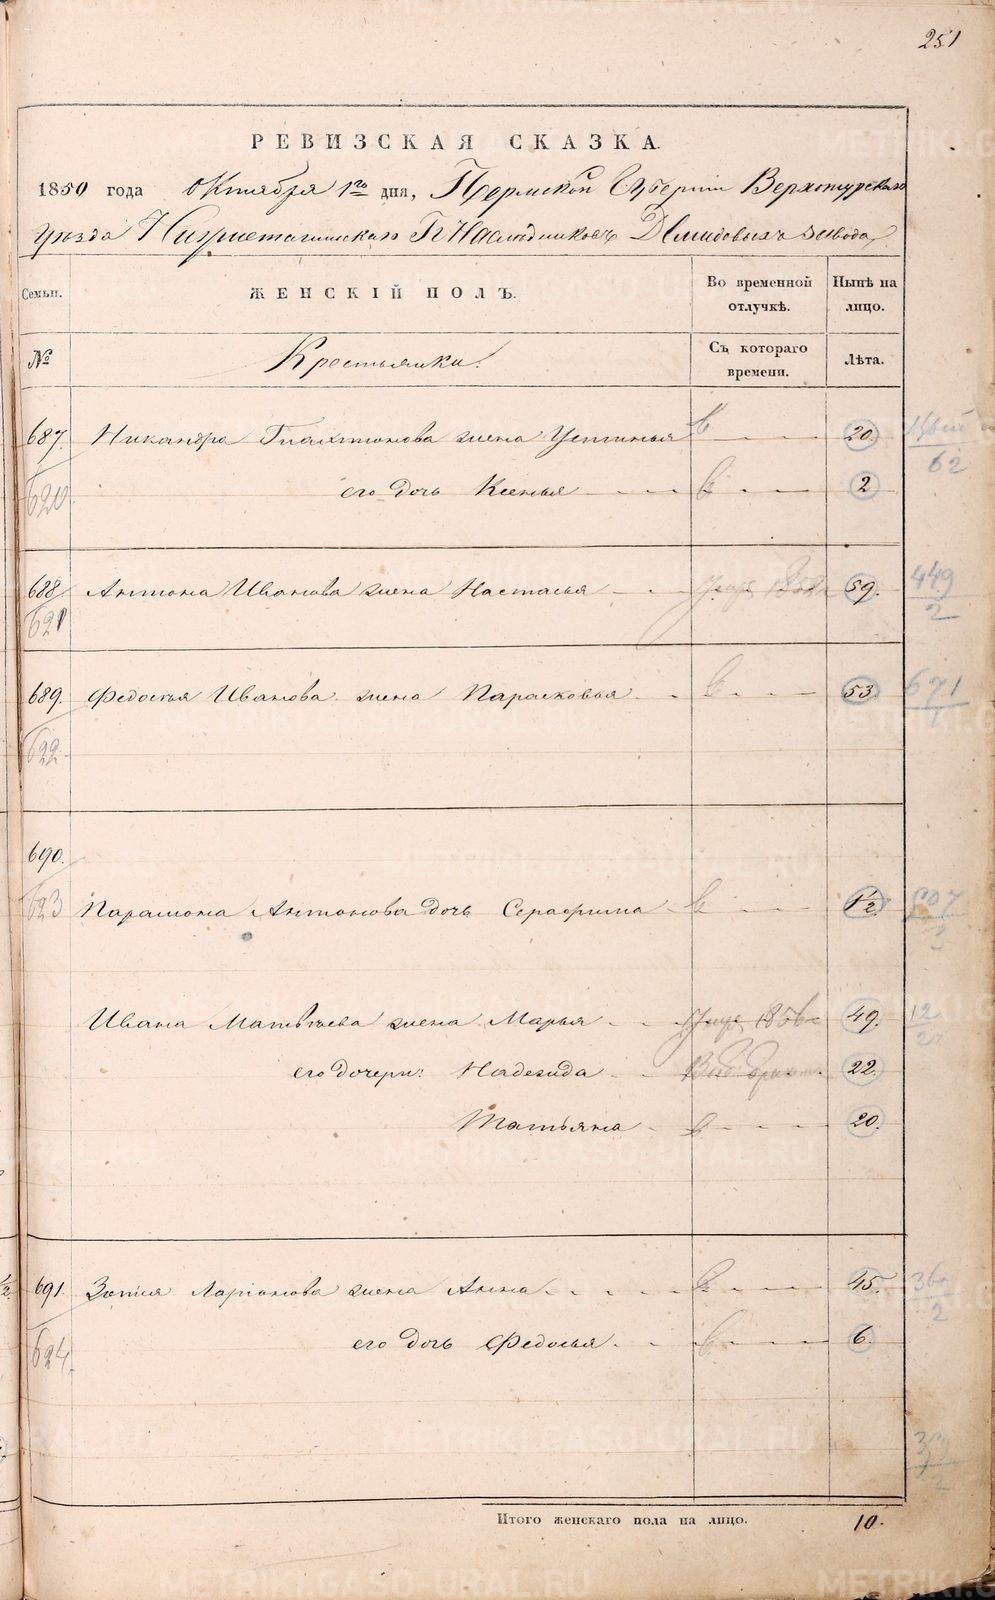 251
РЕВИЗСКАЯ СКАЗКА.
1850 года Октября 1го дня, Пермской Губернии Верхотурскаго
уѣзда Нижнетагильскаго Г. Наслѣдниковъ Демидовыхъ завода
Семьи. ЖЕНСКІЙ ПОЛЪ. Во временной отлучкѣ. Нынѣ на лицо.
№ Крестьянки. Съ котораго времени. Лѣта.
687. Никандра жена Устинья 20.
620 его дочь Ксенья 2
62
688 Антона Иванова жена Настасья 59. 449
621 2
689. Федосѣя Иванова жена Парасковья 53 671
622
690.
623 Парамона Антонова дочь Серафима 1/2. 507
Ивана Матвѣева жена Марья 1856 49. 12
его дочери: Надежда 22.
Татьяна 20.
691. Зотия Ларіонова жена Анна 45.
624 его дочь Федосья 6. 2
Итого женскаго пола на лицо. 10.
METRIKI.GASO-URAL.RU